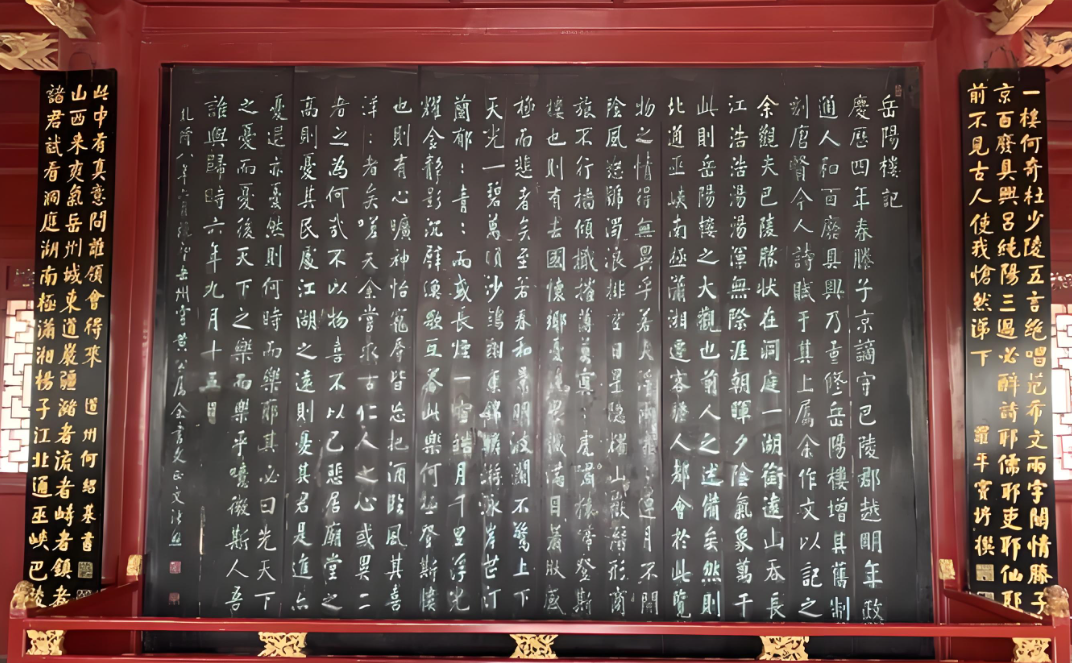 一樓何奇杜少陵五言絶唱范希文兩字關情滕子
京百廢具興呂純陽三過必醉詩耶儒耶吏耶仙耶
前不見古人使我愴然涕下
羅平竇垿撰
岳陽樓記
慶歷四年春滕子京謫守巴陵郡越明年政
通人和百廢具興乃重修岳陽樓增其舊制
刻唐賢今人詩賦于其上属余作文以記之
余觀夫巴陵勝状在洞庭一湖銜遠山吞長
江浩浩湯湯渾無際涯朝暉夕陰氣象萬千
此則岳陽樓之大觀也前人之述備矣然則
北通巫峽南極瀟湘遷客騷人都會於此覽
物之情得無異乎若夫淫雨霏:連月不開
陰風怒號濁浪排空日星隱耀山嶽潛形商
旅不行檣傾檝摧薄暮冥:虎嘯猿啼登斯
樓也則有去國懷鄉憂讒畏譏滿目蕭然感
極而悲者矣至若春和景明波瀾不驚上下
天光一碧萬頃沙鷗翔集錦鱗游泳岸芷汀
蘭郁:青:而或長煙一空皓月千里浮光
耀金靜影沉璧漁歌互答此樂何極登斯樓
也則有心曠神怡寵辱皆忘把酒臨風其喜
洋:者矣嗟夫余嘗求古仁人之心或異二
者之為何哉不以物喜不以己悲居廟堂之
高則憂其民處江湖之遠則憂其君是進亦
憂退亦憂然則何時而樂耶其必曰先天下
之憂而憂後天下之樂而樂乎噫微斯人吾
誰與歸時六年九月十五日
諸君試看洞庭湖南極瀟湘楊子江北通巫峽巴陵
山西来爽氣岳州城東道巖疆瀦者流者峙者鎮者
此中有真意問誰領會得來
道州何紹基書